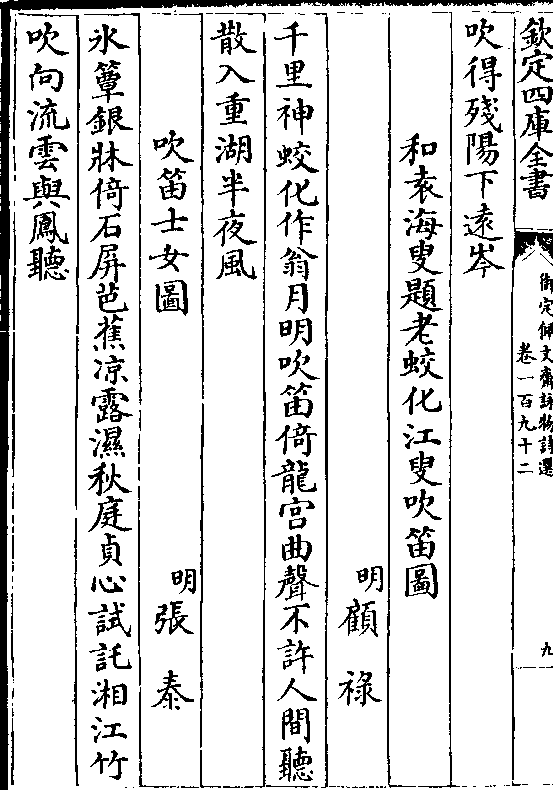 欽定四庫全書
御定佩文齋詠物詩選
卷一百九十二
九
吹得殘陽下遠岑
和袁海叟題老蛟化江叟吹笛圖
明顧祿
千里神蛟化作翁月明吹笛倚龍宮曲聲不許人間聽
散入重湖半夜風
吹笛士女圖
明張泰
氷簟銀牀倚石屏芭蕉凉露濕秋庭貞心試託湘江竹
吹向流雲與鳳聽